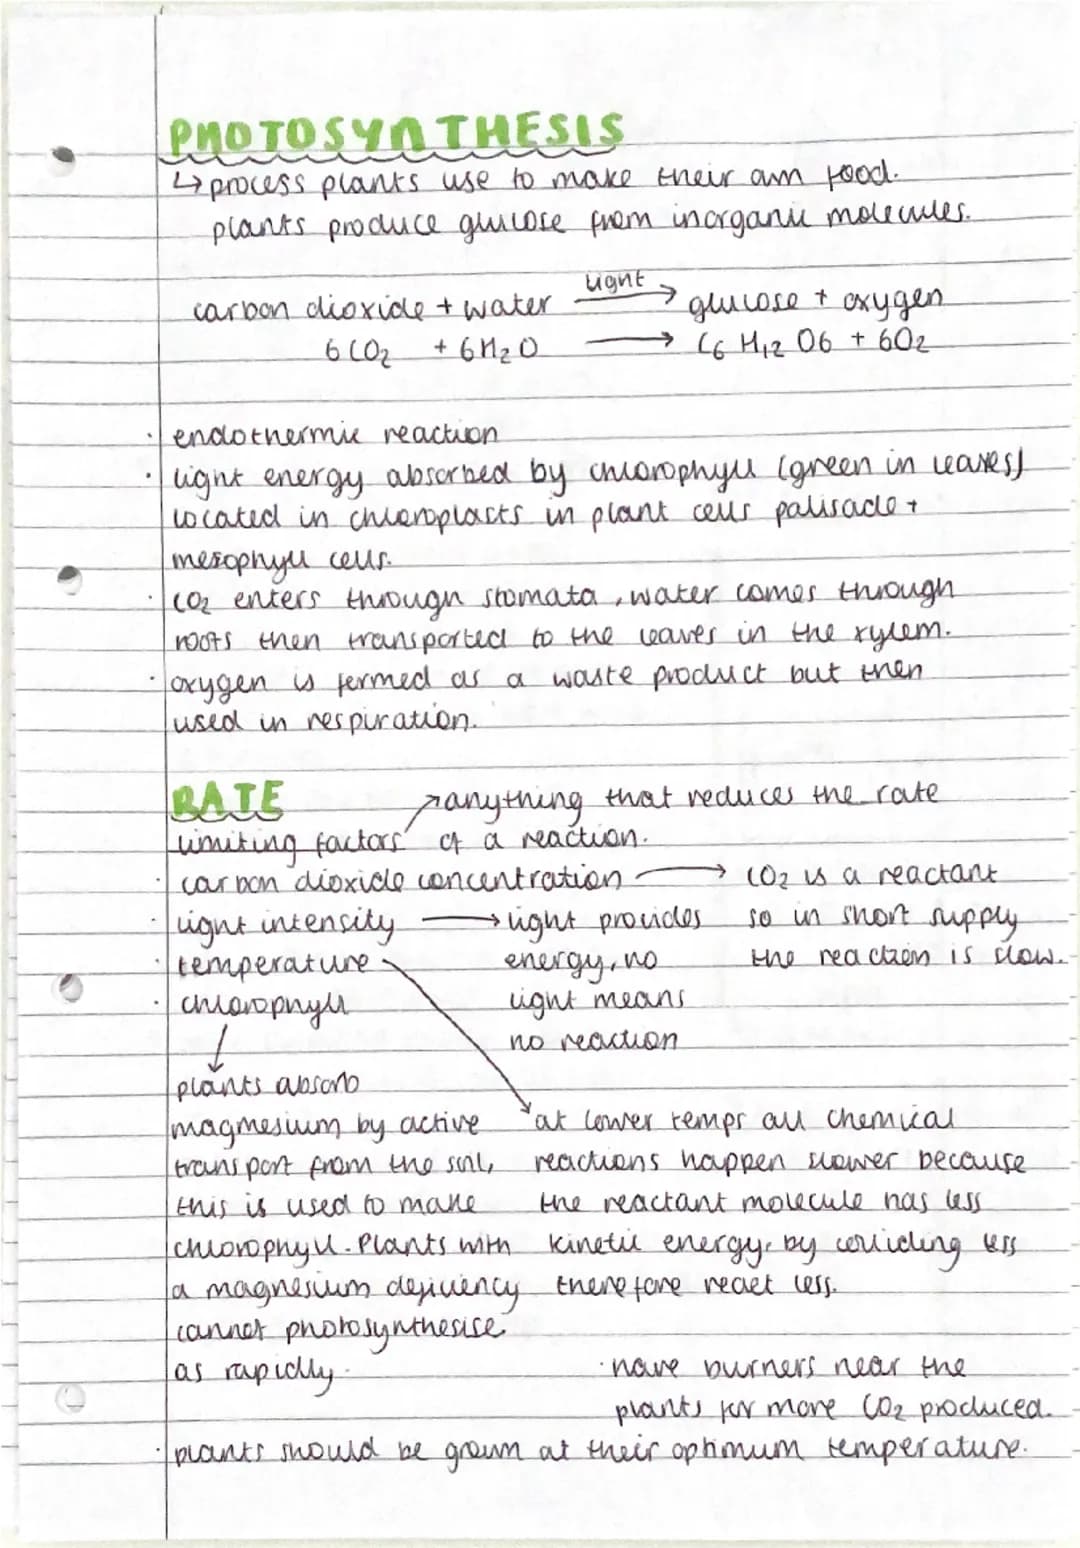 PHOTOSYNTHESIS
↳ process plants use to make their own food.
plants produce glucose from inorganic molecules.
light
carbon dioxide + water → glucose + oxygen
6CO₂ + 6H₂O → C₆H₁₂O6 + 6O₂
· endothermic reaction
· light energy absorbed by chlorophyll (green in leaves)
located in chloroplasts in plant cells palisade +
mesophyll cells.
· CO₂ enters through stomata, water comes through
roots then transported to the leaves in the xylem.
· oxygen is formed as a waste product but then
used in respiration.
RATE
limiting factors ↗ anything that reduces the rate
of a reaction.
· carbon dioxide concentration → CO₂ is a reactant
so in short supply
the reaction is slow.
· light intensity → light provides
energy, no
light means
no reaction
· temperature
· chlorophyll
↓
plants absorb
magnesium by active
transport from the soil,
this is used to make
chlorophyll. Plants with
a magnesium deficiency
cannot photosynthesise
as rapidly.
at lower temps all chemical
reactions happen slower because
the reactant molecule has less
kinetic energy, by colliding less
therefore react less.
· have burners near the
plants for more CO₂ produced.
· plants should be grown at their optimum temperature.